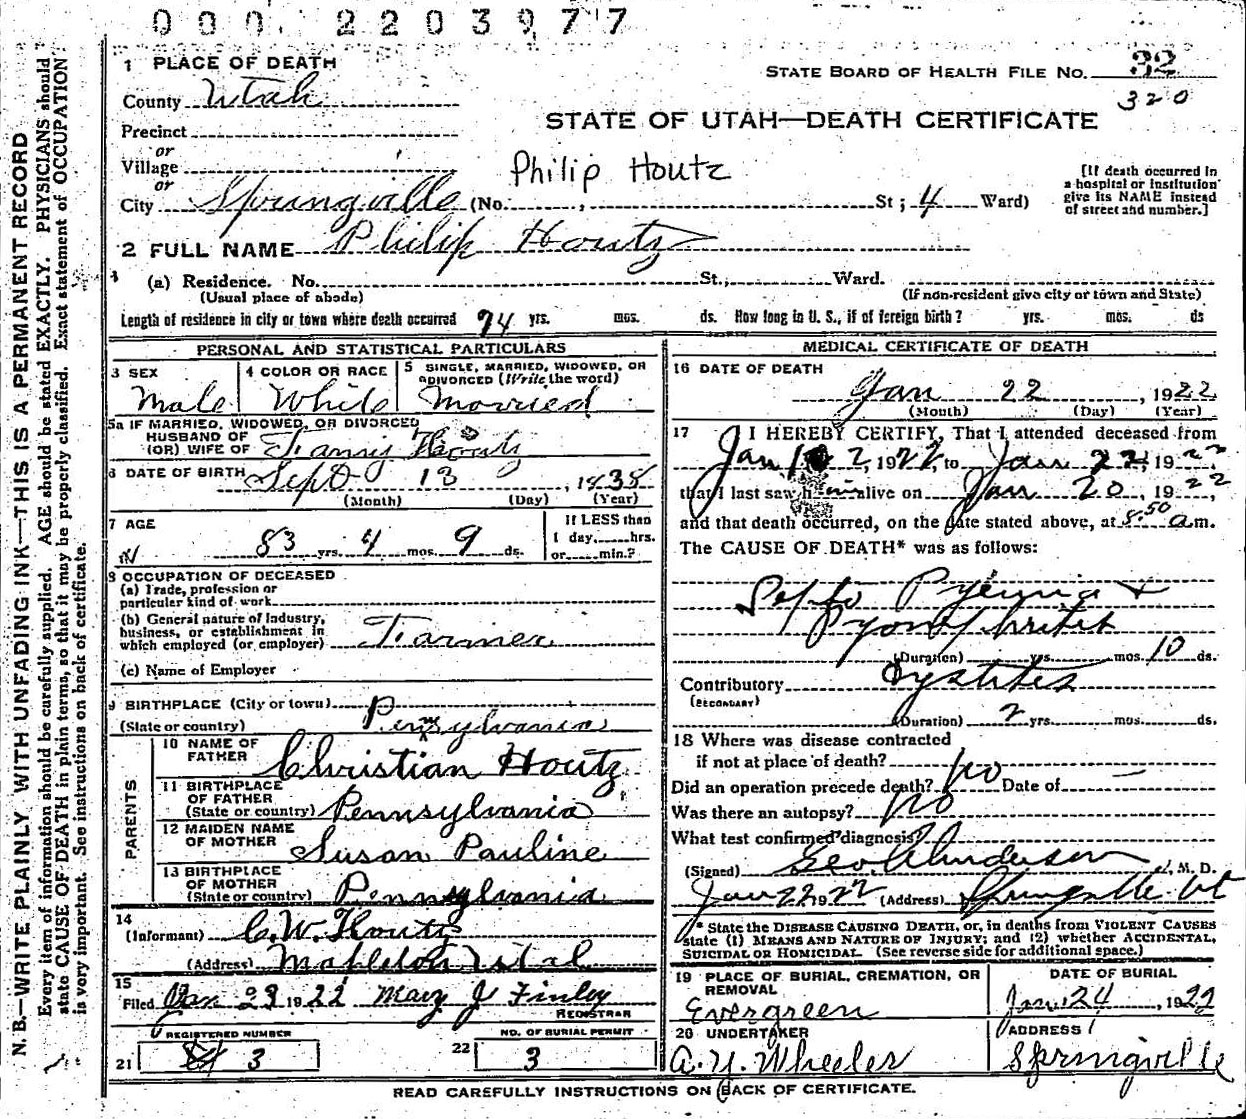 000 2203977
1 PLACE OF DEATH
STATE BOARD OF HEALTH FILE NO. 32
County Utah
320
STATE OF UTAH—DEATH CERTIFICATE
Precinct
or
Village
Philip Houtz
or
[If death occurred in a hospital or institution give its NAME instead of street and number.]
City Springville (No. , St; 4 Ward)
2 FULL NAME Philip Houtz
(a) Residence. No. St., Ward.
(Usual place of abode) (If non-resident give city or town and State)
Length of residence in city or town where death occurred 74 yrs. mos. ds. How long in U. S., if of foreign birth? yrs. mos. ds
PERSONAL AND STATISTICAL PARTICULARS
3 SEX
Male
4 COLOR OR RACE
White
5 SINGLE, MARRIED, WIDOWED, OR DIVORCED (Write the word)
Married
5a IF MARRIED, WIDOWED, OR DIVORCED
HUSBAND OF
(OR) WIFE OF Fanny Houtz
6 DATE OF BIRTH Sept 13, 1838
(Month) (Day) (Year)
7 AGE
83 yrs. 4 mos. 9 ds.
If LESS than
1 day, hrs.
or min.?
8 OCCUPATION OF DECEASED
(a) Trade, profession or
particular kind of work
(b) General nature of industry,
business, or establishment in
which employed (or employer) Farmer
(c) Name of Employer
9 BIRTHPLACE (City or town)
(State or country) Pennsylvania
PARENTS
10 NAME OF
FATHER Christian Houtz
11 BIRTHPLACE
OF FATHER
(State or country) Pennsylvania
12 MAIDEN NAME
OF MOTHER Susan Pauline
13 BIRTHPLACE
OF MOTHER
(State or country) Pennsylvania
14
(Informant) C. W. Houtz
(Address) Mapleton Utah
15
Filed Jan 23 1922 Mary J Finley
REGISTRAR
REGISTERED NUMBER
21 3
NO. OF BURIAL PERMIT
22 3
MEDICAL CERTIFICATE OF DEATH
16 DATE OF DEATH
Jan 22, 1922
(Month) (Day) (Year)
17 I HEREBY CERTIFY, That I attended deceased from
Jan 2, 1922, to Jan 22, 1922,
that I last saw him alive on Jan 20, 1922,
and that death occurred, on the date stated above, at 8.50 a.m.
The CAUSE OF DEATH* was as follows:
Septo Pyemia &
Pyonephritis
(Duration) yrs. mos. 10 ds.
Contributory Cystites
(SECONDARY)
(Duration) 2 yrs. mos. ds.
18 Where was disease contracted
if not at place of death?
Did an operation precede death? No Date of —
Was there an autopsy? No
What test confirmed diagnosis?
(Signed) Geo. Anderson, M. D.
Jan 22 1922 (Address) Springville Ut
* State the DISEASE CAUSING DEATH, or, in deaths from VIOLENT CAUSES
state (1) MEANS AND NATURE OF INJURY; and (2) whether ACCIDENTAL,
SUICIDAL OR HOMICIDAL. (See reverse side for additional space.)
19 PLACE OF BURIAL, CREMATION, OR
REMOVAL
Evergreen
DATE OF BURIAL
Jan. 24, 1922
20 UNDERTAKER
A. Y. Wheeler
ADDRESS
Springville
READ CAREFULLY INSTRUCTIONS ON BACK OF CERTIFICATE.
N. B.—WRITE PLAINLY, WITH UNFADING INK—THIS IS A PERMANENT RECORD
Every item of information should be carefully supplied. AGE should be stated EXACTLY. PHYSICIANS should
state CAUSE OF DEATH in plain terms, so that it may be properly classified. Exact statement of OCCUPATION
is very important. See instructions on back of certificate.